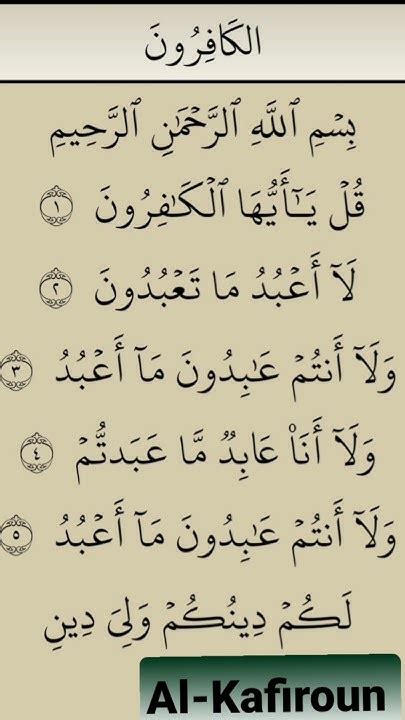 الكَافِرُونَ
بِسۡمِ ٱللَّهِ ٱلرَّحۡمَٰنِ ٱلرَّحِيمِ
قُلۡ يَـٰٓأَيُّهَا ٱلۡكَـٰفِرُونَ ١
لَآ أَعۡبُدُ مَا تَعۡبُدُونَ ٢
وَلَآ أَنتُمۡ عَـٰبِدُونَ مَآ أَعۡبُدُ ٣
وَلَآ أَنَا۠ عَابِدٞ مَّا عَبَدتُّمۡ ٤
وَلَآ أَنتُمۡ عَـٰبِدُونَ مَآ أَعۡبُدُ ٥
لَكُمۡ دِينُكُمۡ وَلِيَ دِينِ
Al-Kafiroun